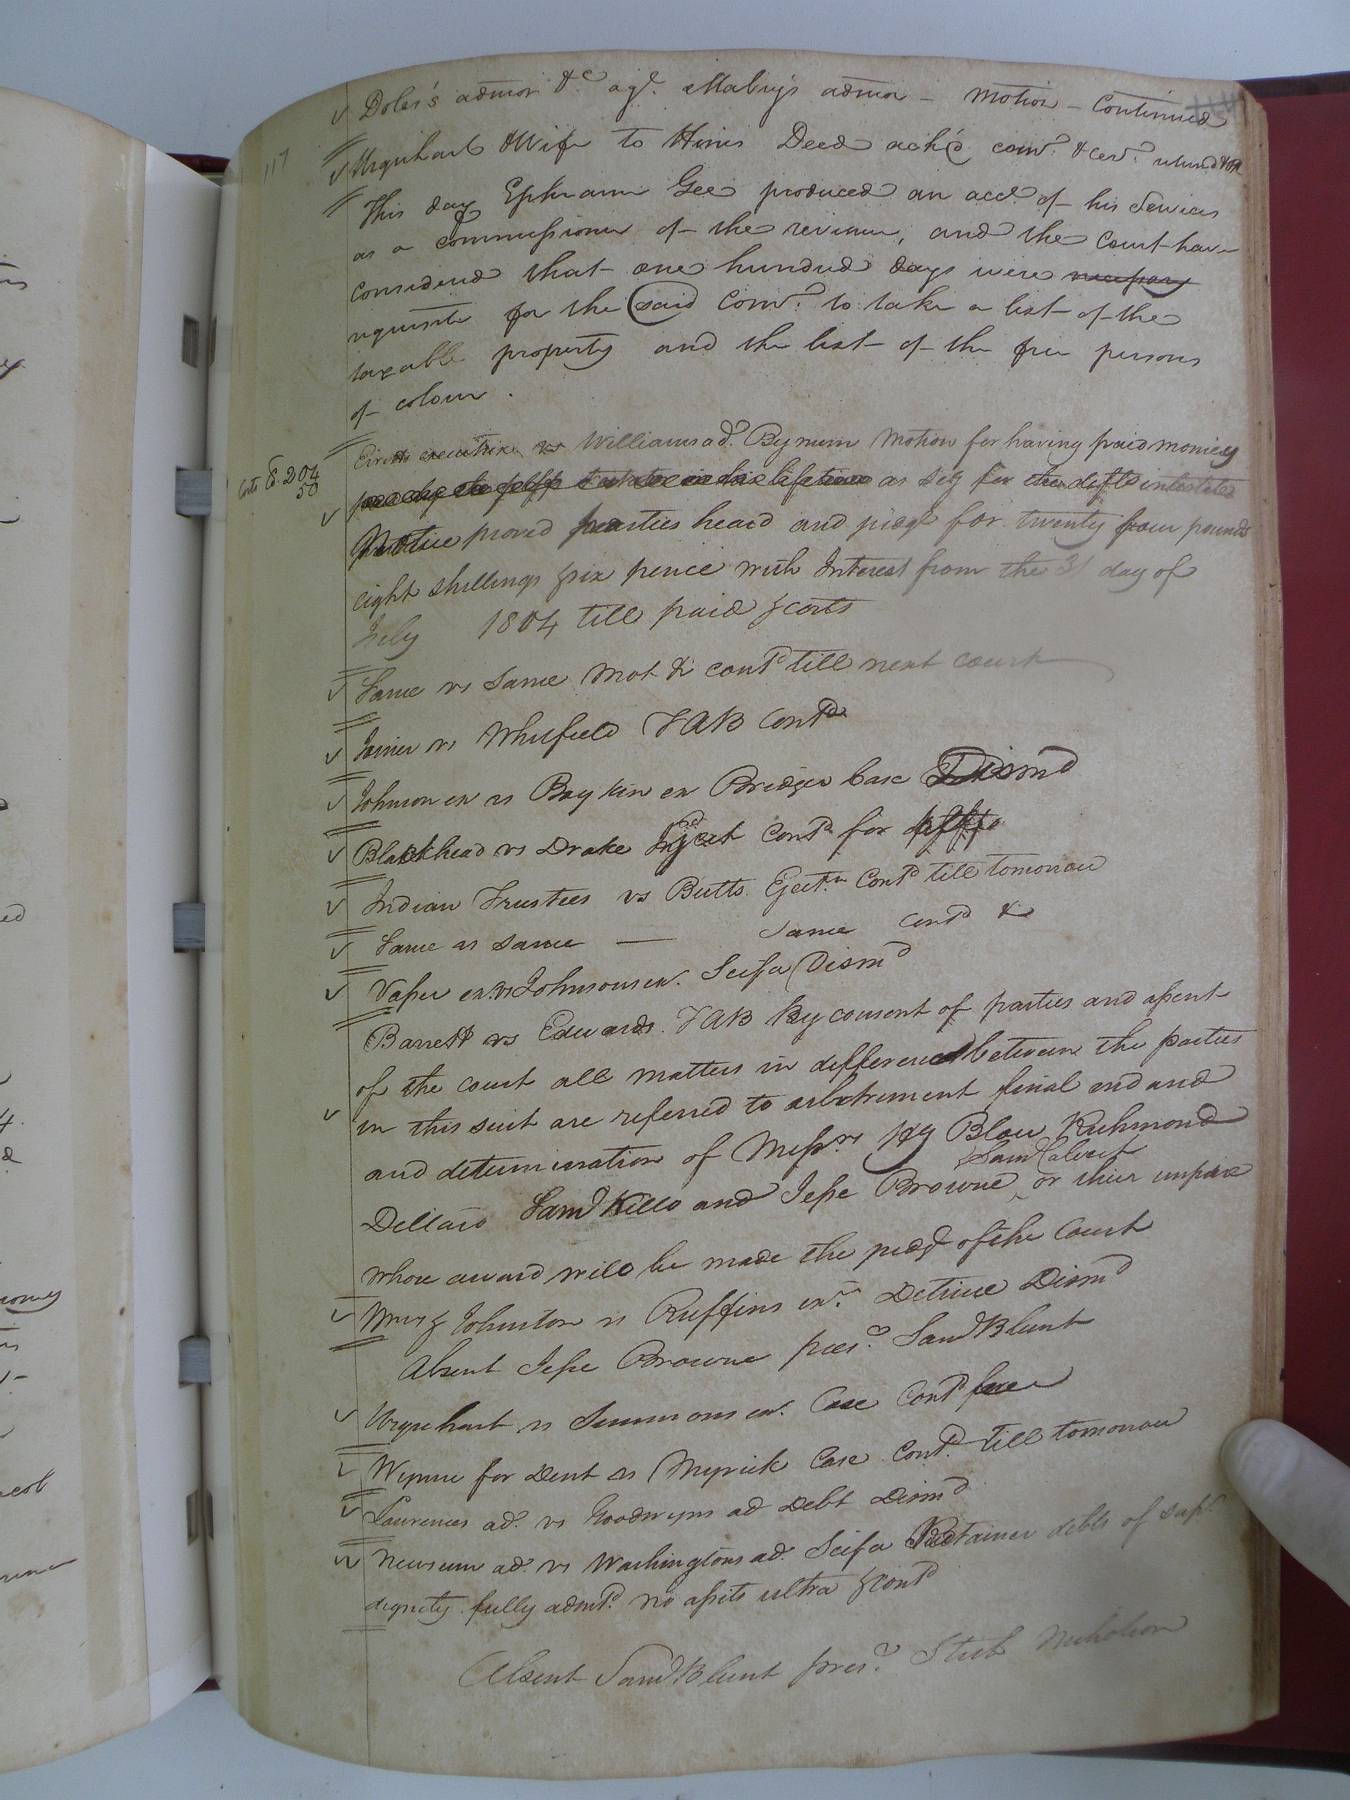 117
Doles's admor &c agt. Mabry's admor - Motion - Continued
Urquhart & Wife to Hines Deed ackd comn. & cert.
This day Ephraim Gee produced an acct. of his Services
as a commissioner of the revenue, and the court have
considered that one hundred days were necessary
requisite for the said Comr. to take a list of the
taxable property and the list of the free persons
of colour.
executrix vs Williams ad. Bynum Motion for having paid monies
Costs C. 204
50
as sety for the defts intestate
Notice proved parties heard and judgt for twenty four pounds
eight shillings & six pence with Interest from the 31 day of
July 1804 till paid & costs
Same vs Same Mot &c contd till next court
Joiner vs Whitfield TAB Contd
Johnson ex vs Boykin ex Bridger Case Dismd
Blackhead vs Drake Eject Contd for plff
Indian Trustees vs Butts Ejectm Contd till tomorrow
Same vs Same — Same contd &
Vaser ex. vs Johnsons ex. Scifa Dismd
Barrett vs Edwards. TAB By consent of parties and assent
of the court all matters in difference between the parties
in this suit are referred to arbitrement final end and
and determination of Messrs. Hy Blow Richmond
Saml Calvert
Dellard Saml Kello and Jesse Browne, or their umpire
whose award will be made the judgt of the Court
Johnston vs Ruffins exr. Detinue Dismd
Absent Jesse Browne prest. Saml Blunt
Urquhart vs Simmons ex. Case Contd
Wynne for Dent vs Myrick Case Contd. till tomorrow
Laurences ad. vs Goodwyns ad Debt Dismd
Newsum ad. vs Washingtons ad. Scifa Retainer debts of supr.
dignity. fully admd. no assets ultra & contd
Absent Saml Blunt prest. Nicholson